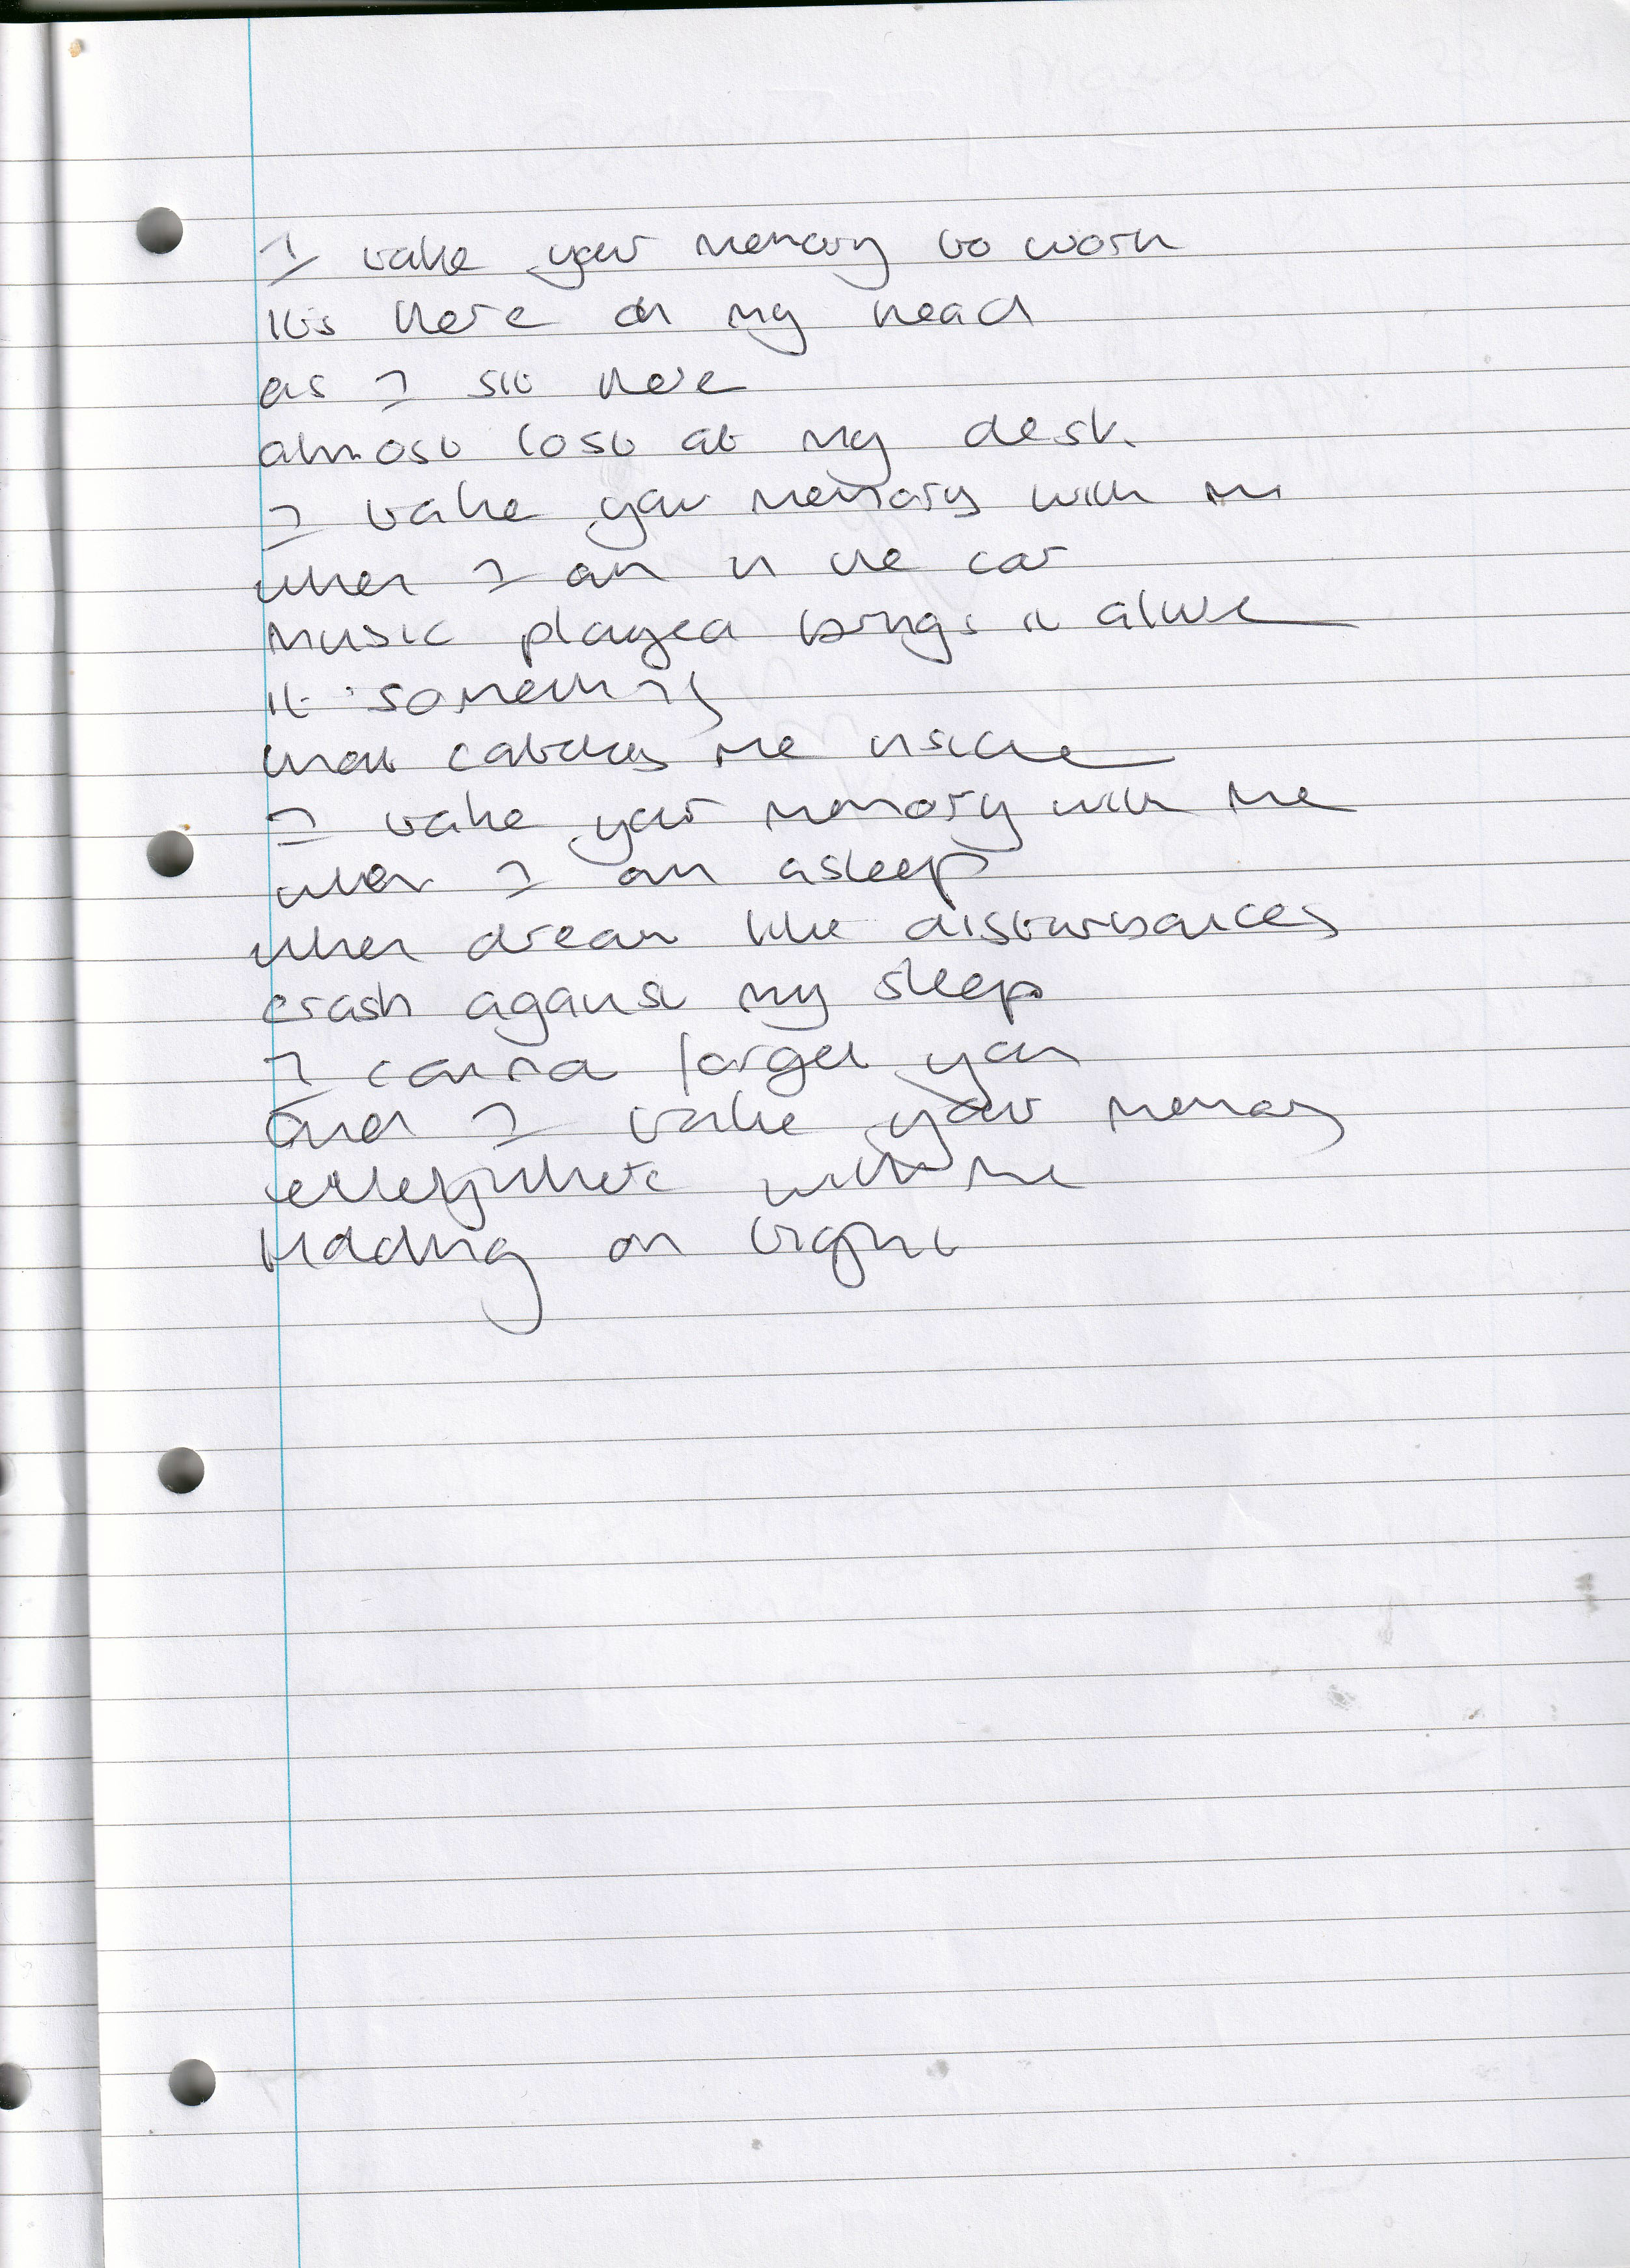 I take your memory to work
Its here in my head
as I sit here
almost lost at my desk
I take your memory with me
when I am in the car
Music played brings it alive
It something
that catches me inside
I take your memory with me
when I am asleep
when dream like disturbances
crash against my sleep
I cannot forget you
And I take your memory
everywhere with me
Holding on tight